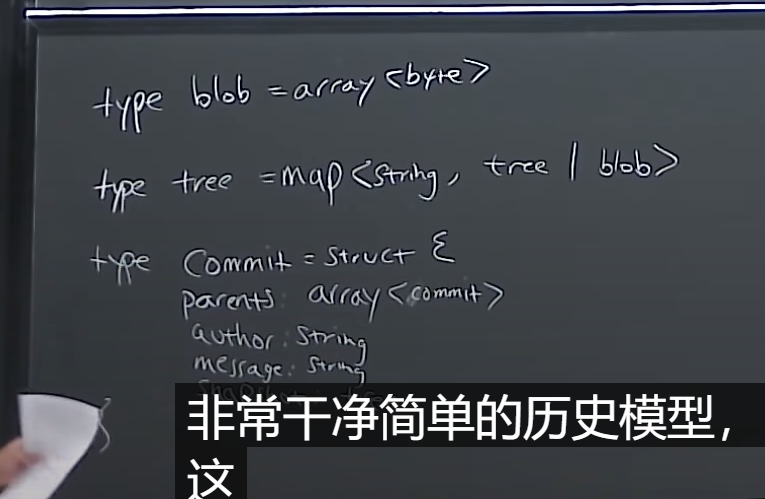 type blob = array<byte>
type tree = map<string, tree | blob>
type commit = struct {
parents: array<commit>
author: string
message: string
}
非常干净简单的历史模型，
这